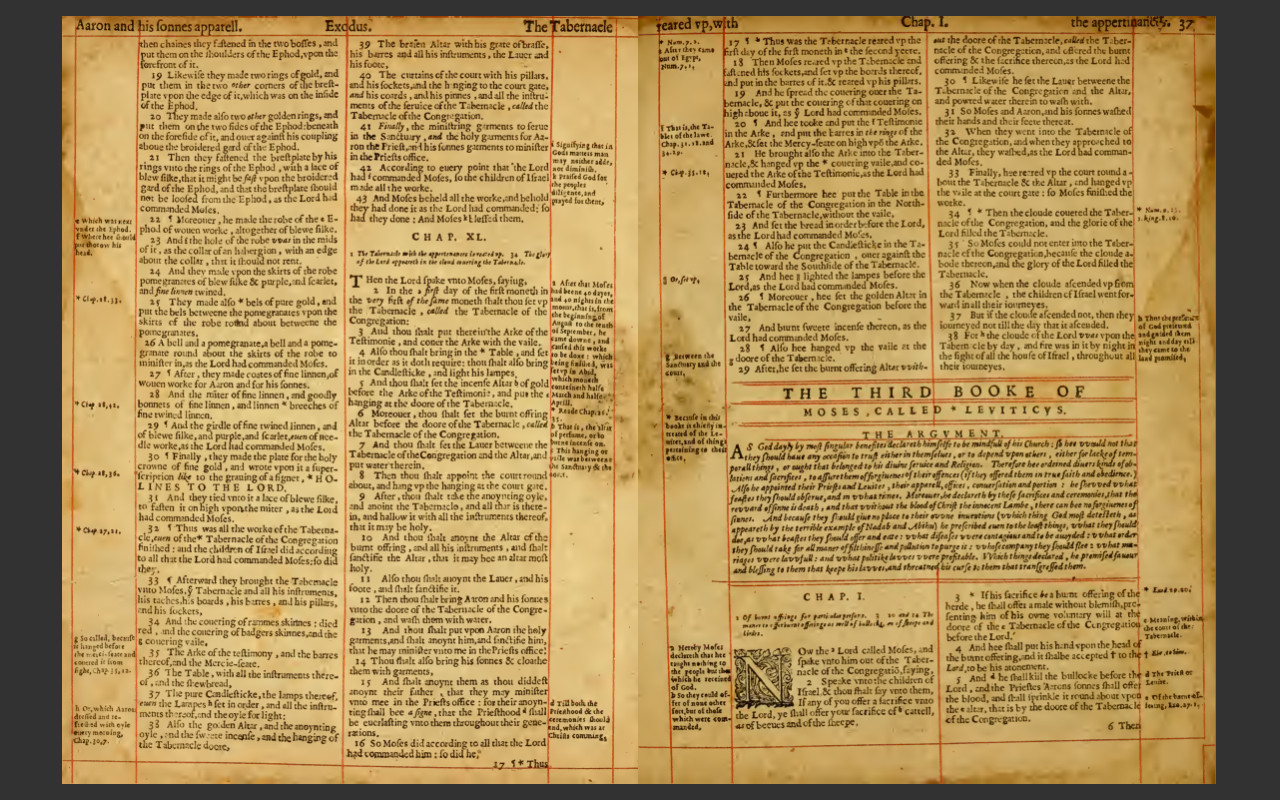 Aaron and his sonnes apparell. Exodus. The Tabernacle
then chaines they fastened in the two bosses, and
put them on the shoulders of the Ephod, vpon the
forefront of it.
19 Likewise they made two rings of gold, and
put them in the two other corners of the brest-
plate vpon the edge of it, which was on the inside
of the Ephod.
20 They made also two other golden rings, and
put them on the two sides of the Ephod, beneath
on the foreside of it, and ouer against his coupling
aboue the broidered gard of the Ephod.
21 Then they fastened the brestplate by his
rings vnto the rings of the Ephod, with a lace of
blew silke, that it might be fast vpon the broidered
gard of the Ephod, and that the brestplate should
not be loosed from the Ephod, as the Lord had
commanded Moses.
22 ¶ Moreouer, he made the robe of the e E-
phod of wouen worke, altogether of blewe silke.
23 And f the hole of the robe was in the mids
of it, as the collar of an habergion, with an edge
about the collar, that it should not rent.
24 And they made vpon the skirts of the robe
pomegranates of blew silke & purple, and scarlet,
and fine linnen twined.
25 They made also * bels of pure gold, and
put the bels betweene the pomegranates vpon the
skirts of the robe round about betweene the
pomegranates.
26 A bell and a pomegranate, a bell and a pome-
granate round about the skirts of the robe to
minister in, as the Lord had commanded Moses.
27 ¶ After, they made coates of fine linnen, of
wouen worke for Aaron and for his sonnes.
28 And the miter of fine linnen, and goodly
bonnets of fine linnen, and linnen * breeches of
fine twined linnen.
29 ¶ And the girdle of fine twined linnen, and
of blewe silke, and purple, and scarlet, euen of nee-
dle worke, as the Lord had commanded Moses.
30 ¶ Finally, they made the plate for the holy
crowne of fine gold, and wrote vpon it a super-
scription like to the grauing of a signet, * HO-
LINES TO THE LORD.
31 And they tied vnto it a lace of blewe silke,
to fasten it on high vpon the miter, as the Lord
had commanded Moses.
32 ¶ Thus was all the worke of the Taberna-
cle, euen of the * Tabernacle of the Congregation
finished: and the children of Israel did according
to all that the Lord had commanded Moses: so did
they.
33 ¶ Afterward they brought the Tabernacle
vnto Moses, ẙ Tabernacle and all his instruments,
his taches, his boards, his barres, and his pillars,
and his sockets,
34 And the couering of rammes skinnes died
red, and the couering of badgers skinnes, and the
g couering vaile,
35 The Arke of the testimony, and the barres
thereof, and the Mercie-seate.
36 The Table, with all the instruments there-
of, and the shewbread,
37 The pure Candlesticke, the lamps thereof,
euen the Lampes h set in order, and all the instru-
ments thereof, and the oyle for light:
38 Also the golden Altar, and the anoynting
oyle, and the sweete incense, and the hanging of
the Tabernacle doore,
e Which was next
vnder the Ephod.
f Where hee should
put thorow his
head.
* Chap. 28.33.
* Chap 28,42.
* Chap 28,36.
* Chap 27,21.
g So called, because
it hanged before
the mercie-seate and
couered it from
sight, Chap. 35,12.
h Or, which Aaron
dressed and re-
freshed with oyle
euery morning,
Chap. 30,7.
39 The brasen Altar with his grate of brasse,
his barres and all his instruments, the Lauer and
his foote,
40 The curtains of the court with his pillars,
and his sockets, and the hanging to the court gate,
and his coards, and his pinnes, and all the instru-
ments of the seruice of the Tabernacle, called the
Tabernacle of the Congregation.
41 Finally, the ministring garments to serue
in the Sanctuary, and the holy garments for Aa-
ron the Priest, and his sonnes garments to minister
in the Priests office.
42 According to every point that the Lord
had i commanded Moses, so the children of Israel
made all the worke.
43 And Moses beheld all the worke, and behold
they had done it as the Lord had commanded; so
had they done: And Moses k blessed them.
CHAP. XL.
1 The Tabernacle with the appertenances is reared vp. 34 The glory
of the Lord appeareth in the cloud couering the Tabernacle.
THen the Lord spake vnto Moses, saying,
2 In the a first day of the first moneth in
the very first of the same moneth shalt thou set vp
the Tabernacle, called the Tabernacle of the
Congregation:
3 And thou shalt put therein the Arke of the
Testimonie, and couer the Arke with the vaile.
4 Also thou shalt bring in the * Table, and set
it in order as it doth require: thou shalt also bring
in the Candlesticke, and light his lampes,
5 And thou shalt set the incense Altar b of gold
before the Arke of the Testimonie, and put the c
hanging at the doore of the Tabernacle.
6 Moreouer, thou shalt set the burnt offring
Altar before the doore of the Tabernacle, called
the Tabernacle of the Congregation.
7 And thou shalt set the Lauer betweene the
Tabernacle of the Congregation and the Altar, and
put water therein.
8 Then thou shalt appoint the court round
about, and hang vp the hanging at the court gate.
9 After, thou shalt take the anoynting oyle,
and anoint the Tabernacle, and all that is there-
in, and hallow it with all the instruments thereof,
that it may be holy.
10 And thou shalt anoynt the Altar of the
burnt offring, and all his instruments, and shalt
sanctifie the Altar, that it may bee an altar most
holy.
11 Also thou shalt anoynt the Lauer, and his
foote, and shalt sanctifie it.
12 Then thou shalt bring Aaron and his sonnes
vnto the doore of the Tabernacle of the Congre-
gation, and wash them with water.
13 And thou shalt put vpon Aaron the holy
garments, and shalt anoynt him, and sanctifie him,
that he may minister vnto me in the Priests office:
14 Thou shalt also bring his sonnes & cloathe
them with garments,
15 And shalt anoynt them as thou diddest
anoynt their father, that they may minister
vnto mee in the Priests office: for their anoyn-
ting shall bee a signe, that the Priesthood d shall
be euerlasting vnto them throughout their gene-
rations.
16 So Moses did according to all that the Lord
had commanded him: so did he.
17 ¶ * Thus
i Signifying that in
Gods matters man
may neither adde,
nor diminish.
k Praised God for
the peoples
diligence, and
prayed for them.
a After that Moses
had beene 40 dayes,
and 40 nights in the
mount, that is, from
the beginning of
August to the tenth
of September, he
came downe, and
caused this worke
to be done: which
being finished, was
set vp in Abib,
which moneth
conteineth halfe
March and halfe
Aprill.
* Reade Chap. 25.
b That is, the altar
of perfume, or to
burne incense on.
c This hanging or
vaile was betweene
the Sanctuary & the
court.
d Till both the
Priesthood & the
ceremonies should
end, which was at
Christs comming.
reared vp, with Chap. I. the appertinances. 37
17 ¶ * Thus was the Tabernacle reared vp the
first day of the first moneth in e the second yeere.
18 Then Moses reared vp the Tabernacle and
fastened his sockets, and set vp the boards thereof,
and put in the barres of it, & reared vp his pillars.
19 And he spread the couering ouer the Ta-
bernacle, & put the couering of that couering on
high aboue it, as ẙ Lord had commanded Moses.
20 ¶ And hee tooke and put the f Testimonie
in the Arke, and put the barres in the rings of the
Arke, & set the Mercy-seate on high vpō the Arke.
21 He brought also the Arke into the Taber-
nacle, & hanged vp the * couering vaile, and co-
uered the Arke of the Testimonie, as the Lord had
commanded Moses.
22 ¶ Furthermore hee put the Table in the
Tabernacle of the Congregation in the North-
side of the Tabernacle, without the vaile,
23 And set the bread in order before the Lord,
as the Lord had commanded Moses.
24 ¶ Also he put the Candlesticke in the Ta-
bernacle of the Congregation, ouer against the
Table toward the Southside of the Tabernacle.
25 And hee || lighted the lampes before the
Lord, as the Lord had commanded Moses.
26 ¶ Moreouer, hee set the golden Altar in
the Tabernacle of the Congregation before the
vaile,
27 And burnt sweete incense thereon, as the
Lord had commanded Moses.
28 ¶ Also hee hanged vp the vaile at the
g doore of the Tabernacle.
29 After, he set the burnt offering Altar with-
* Num. 7.1.
e After they came
out of Egypt,
Num. 7.1.
f That is, the Ta-
bles of the lawe.
Chap. 31.18. and
34.29.
* Chap. 35.12.
|| Or, set vp.
g Between the
Sanctuary and the
court.
out the doore of the Tabernacle, called the Taber-
nacle of the Congregation, and offered the burnt
offering & the sacrifice thereon, as the Lord had
commanded Moses.
30 ¶ Likewise he set the Lauer betweene the
Tabernacle of the Congregation and the Altar,
and powred water therein to wash with.
31 So Moses and Aaron, and his sonnes washed
their hands and their feete thereat.
32 When they went into the Tabernacle of
the Congregation, and when they approched to
the Altar, they washed, as the Lord had comman-
ded Moses.
33 Finally, hee reared vp the court round a-
bout the Tabernacle & the Altar, and hanged vp
the vaile at the court gate: so Moses finished the
worke.
34 ¶ * Then the cloude couered the Taber-
nacle of the Congregation, and the glorie of the
Lord filled the Tabernacle.
35 So Moses could not enter into the Taber-
nacle of the Congregation, because the cloude a-
bode thereon, and the glory of the Lord filled the
Tabernacle.
36 Now when the cloude ascended vp from
the Tabernacle, the children of Israel went for-
ward in all their iourneyes.
37 But if the cloude ascended not, then they
iourneyed not till the day that it ascended.
38 For h the cloude of the Lord was vpon the
Tabernacle by day, and fire was in it by night in
the sight of all the house of Israel, throughout all
their iourneyes.
* Num. 9.15.
1. king. 8.10.
h Thus the presence
of God preserued
and guided them
night and day till
they came to the
land promised.
THE THIRD BOOKE OF
MOSES, CALLED * LEVITICVS.
* Because in this
booke is chiefly in-
treated of the Le-
uites, and of things
pertaining to their
office.
THE ARGVMENT.
AS God dayly by most singular benefites declareth himselfe to be mindfull of his Church: so hee would not that
they should haue any occasion to trust either in themselues, or to depend vpon others, either for lacke of tem-
porall things, or ought that belonged to his diuine seruice and Religion. Therefore hee ordeined diuers kinds of ob-
lations and sacrifices, to assure them of forgiuenesse of their offences (if they offered them in true faith and obedience.)
Also he appointed their Priests and Leuites, their apparell, offices, conuersation and portion: he shewed what
feastes they should obserue, and in what times. Moreouer, he declareth by these sacrifices and ceremonies, that the
reward of sinne is death, and that without the blood of Christ the innocent Lambe, there can bee no forgiuenesse of
sinnes. And because they should giue no place to their owne inuentions (which thing God most detesteth, as
appeareth by the terrible example of Nadab and Abihu) he prescribed euen to the least things, what they should
doe, as what beastes they should offer and eate: what diseases were contagious and to be auoyded: what order
they should take for all maner of filthinesse and pollution to purge it: whose company they should flee: what ma-
riages were lawfull: and what politike lawes were profitable. Which things declared, he promised fauour
and blessing to them that keepe his lawes, and threatned his curse to them that transgressed them.
CHAP. I.
2 Of burnt offerings for particular persons. 3. 10. and 14 The
maner to offer burnt offerings as well of bullocks, as of sheepe and
birdes.
NOw the a Lord called Moses, and
spake vnto him out of the Taber-
nacle of the Congregatiō, saying,
2 Speake vnto the children of
Israel, & thou shalt say vnto them,
If any of you offer a sacrifice vnto
the Lord, ye shall offer your sacrifice of b cattell,
as of beeues and of the sheepe.
a Hereby Moses
declareth that hee
taught nothing to
the people but that
which he receiued
of God.
b So they could of-
fer of none other
sort, but of those
which were com-
manded.
3 * If his sacrifice be a burnt offering of the
herde, he shall offer a male without blemish, pre-
senting him of his owne voluntary will at the
doore of the c Tabernacle of the Congregation
before the Lord.
4 And hee shall put his hand vpon the head of
the burnt offering, and it shalbe accepted † to the
Lord, to be his atonement.
5 And d he shall kill the bullocke before the
Lord, and the Priestes Aarons sonnes shall offer
the blood, and shall sprinkle it round about vpon
the e altar, that is by the doore of the Tabernacle
of the Congregation.
6 Then
* Exod. 29.10.
c Meaning, within
the court of the
Tabernacle.
† Ebr. to him.
d The Priest or
Leuite.
e Of the burnt of-
fering, Exo. 27.1.